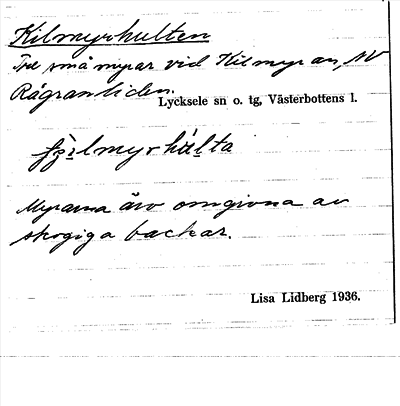 Kilmyrhulten
Tre små myrar vid Kilmyran, NV
Rågranliden.
Lycksele sn o. tg, Västerbottens l.
myrhúlta
Myrarna äro omgivna av
skogiga backar.
Lisa Lidberg 1936.